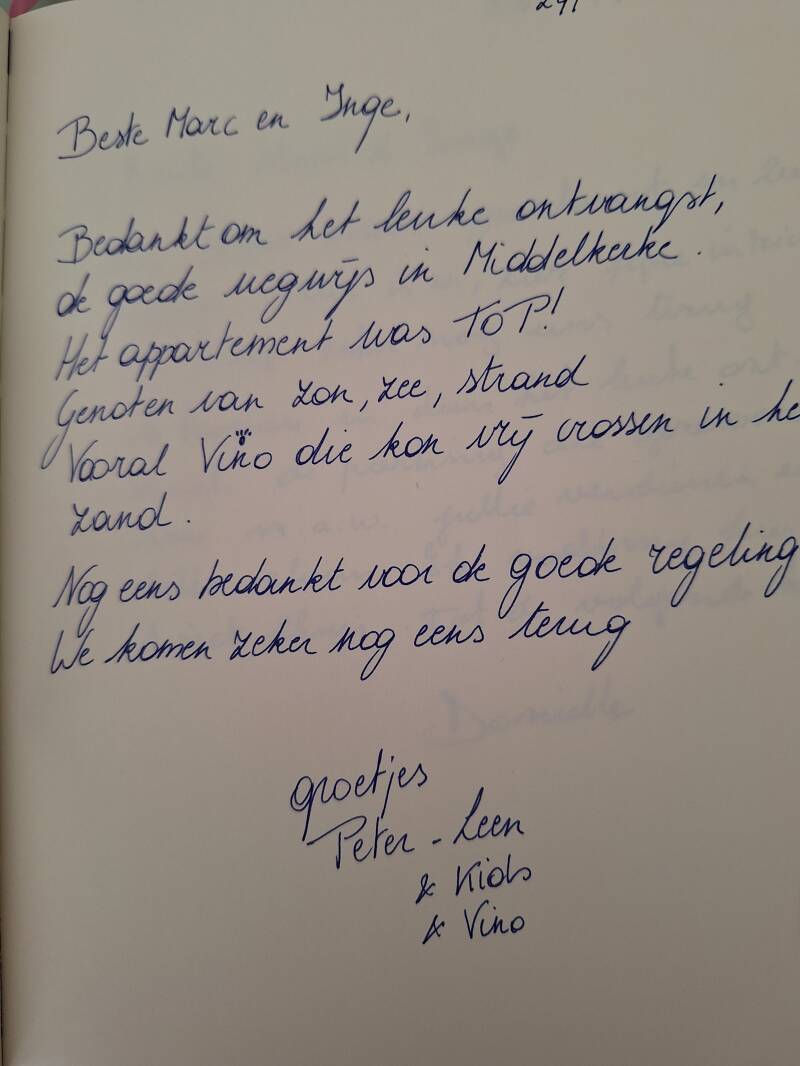 Beste Marc en Inge,
Bedankt om het leuke ontvangst,
de goede wegwijs in Middelkerke.
Het appartement was TOP!
Genoten van zon, zee, strand
Vooral Vino die kon vrij crossen in he
zand.
Nog eens bedankt voor de goede regeling
We komen zeker nog eens terug
groetjes
Peter - Leen
& Kids
& Vino